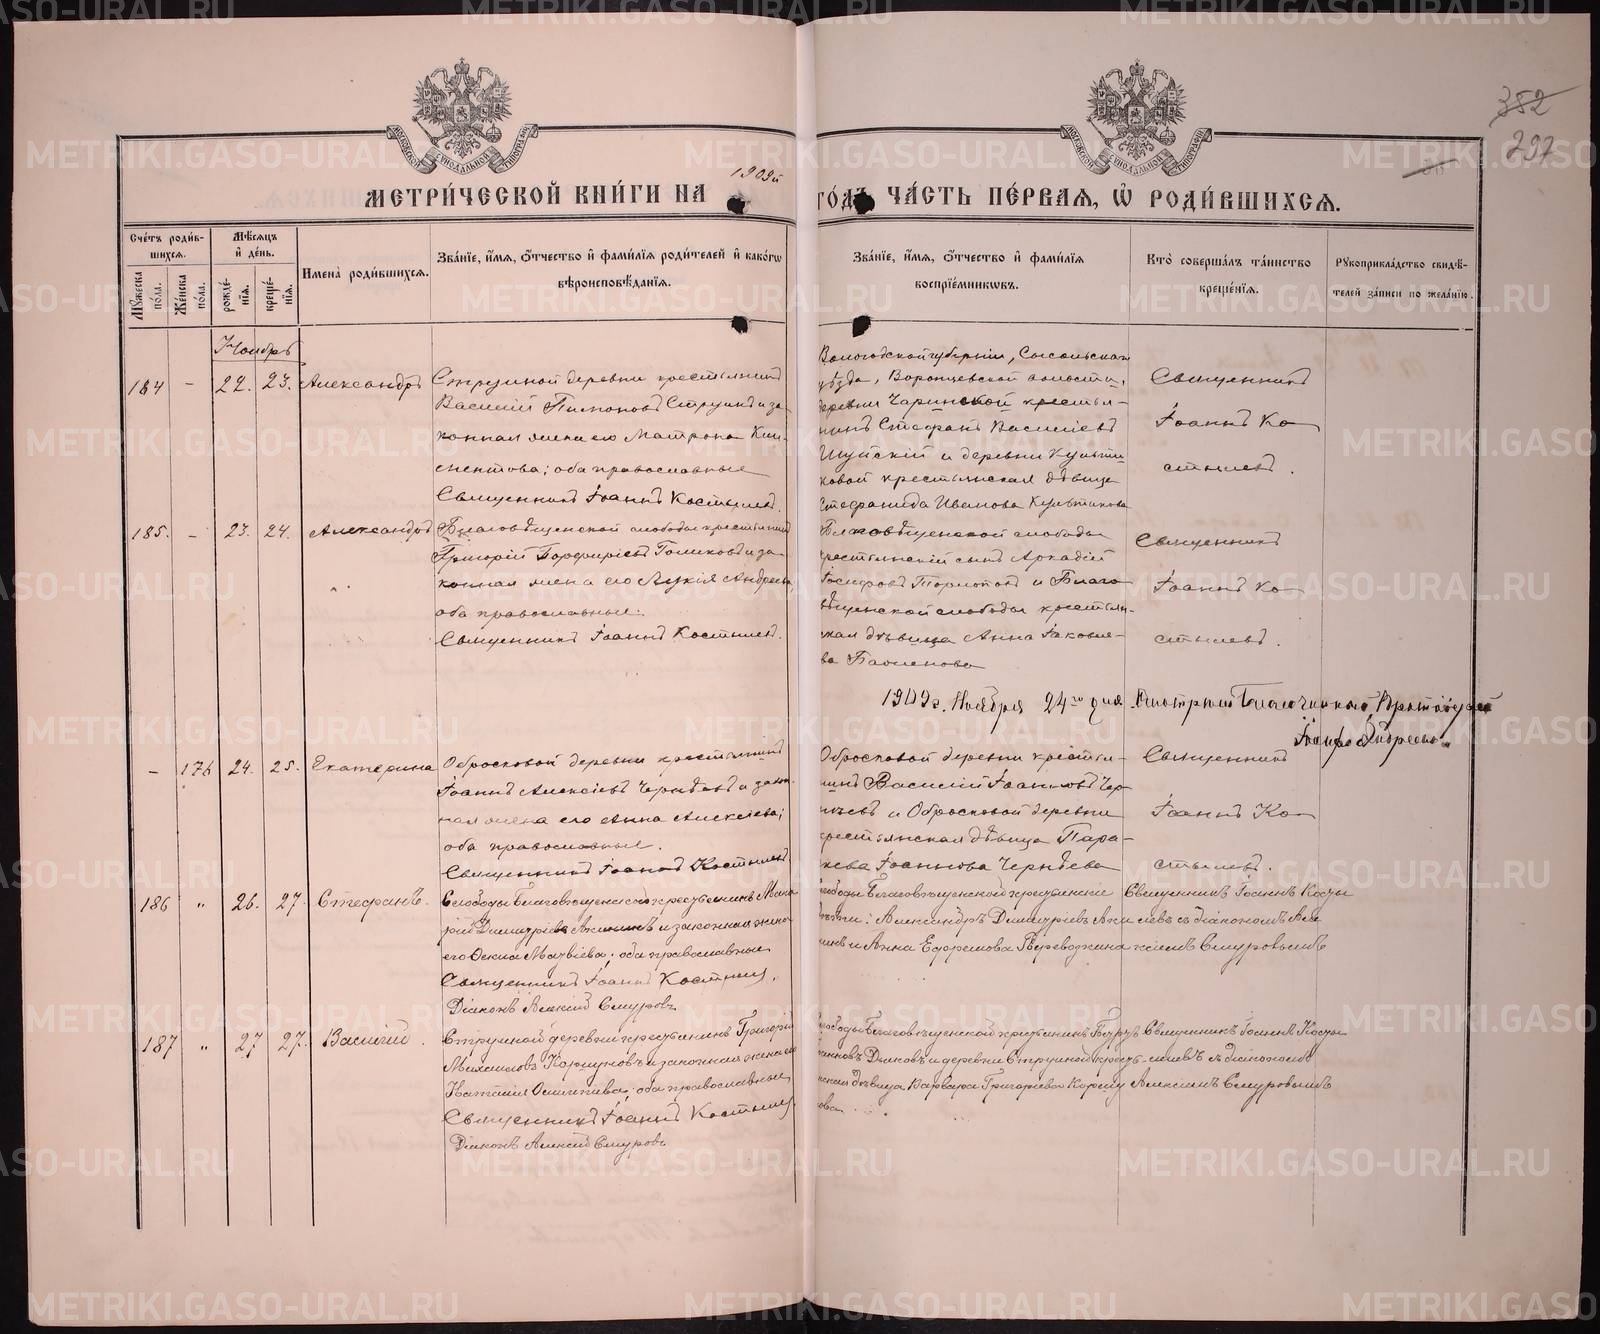 352
297
МЕТРИ́ЧЕСКОЙ КНИ́ГИ НА 1909й ГО́ДЪ ЧА́СТЬ ПЕ́РВАЯ, Ѡ҆ РОДИ́ВШИХСЯ.
Сче́тъ роди́вшихся.
Мꙋ́жеска по́ла.
Же́нска по́ла.
Мѣ́сяцъ и҆ де́нь.
рожде́нїя.
креще́нїя.
И҆мена̀ роди́вшихся.
Зва́нїе, и҆́мя, ѻ҆́тчество и҆ фами́лїя роди́телей и҆ како́гѡ вѣроисповѣ́данїя.
Зва́нїе, и҆́мя, ѻ҆́тчество и҆ фами́лїя воспрїе́мникѡвъ.
Кто̀ соверша́лъ та́инство креще́нїя.
Рꙋкоприкла́дство свидѣ́телей за́писи по жела́нїю.
Ноябрь
184 - 22. 23. Александръ
Струиной деревни крестьянинъ
Василій Пимоновъ Струинъ и за-
конная жена его Матрона Кли-
ментова; оба православные
Священникъ Іоаннъ Костылевъ.
Вологодской губерніи, Сысольскаго
уѣзда, Воронцевской волости,
деревни Чаринской крестья-
нинъ Стефанъ Василіевъ
Шуйскій и деревни Культи-
ковой крестьянская дѣвица
Стефанида Иванова Культикова
Священникъ
Іоаннъ Ко
стылевъ.
185. - 23. 24. Александръ
Благовѣщенской слободы крестьянинъ
Григорій Порфиріевъ Голиковъ и за-
конная жена его Лукія Андреева
оба православные.
Священникъ Іоаннъ Костылевъ.
Благовѣщенской слободы
крестьянскій сынъ Аркадій
Іосифовъ Торлоповъ и Благо-
вѣщенской слободы крестьян-
ская дѣвица Анна Іаковле-
ва
Священникъ
Іоаннъ Ко
стылевъ.
1909 г. Ноября 24го дня. Смотрѣлъ Благочинный Протоіерей
Іосифъ Андреевъ
- 176 24. 25. Екатерина
Обросковой деревни крестьянинъ
Іоаннъ Алексіевъ Чернѣевъ и закон-
ная жена его Анна Алексіева;
оба православные.
Священникъ Іоаннъ Костылевъ
Обросковой деревни крестья-
нинъ Василій Іоанновъ Чер-
нѣевъ и Обросковой деревни
крестьянская дѣвица Пара-
скева Іоаннова Чернѣева
Священникъ
Іоаннъ Ко
стылевъ.
186 " 26. 27. Стефанъ.
Слободы Благовѣщенской крестьянинъ Мака-
рій Димитріевъ и законная жена
его Матвѣева; оба православные
Священникъ Іоаннъ Костылевъ.
Діаконъ Алексій Смуровъ
Слободы Благовѣщенской крестьянскіе
Александръ Димитріевъ
и Анна Ефремова Переводкина
Священникъ Іоаннъ Косты
левъ съ діакономъ Але
ксіемъ Смуровымъ
187 " 27 27. Василій.
Струиной деревни крестьянинъ Григорій
Михаиловъ Коршуновъ и законная жена его
Наталія; оба православные,
Священникъ Іоаннъ Костылевъ
Діаконъ Алексій Смуровъ
Слободы Благовѣщенской крестьянинъ
Дьяковъ и деревни Струиной крестьян-
ская дѣвица Варвара Григоріева Коршу
нова.
Священникъ Іоаннъ Косты
левъ съ діакономъ
Алексіемъ Смуровымъ
METRIKI.GASO-URAL.RU